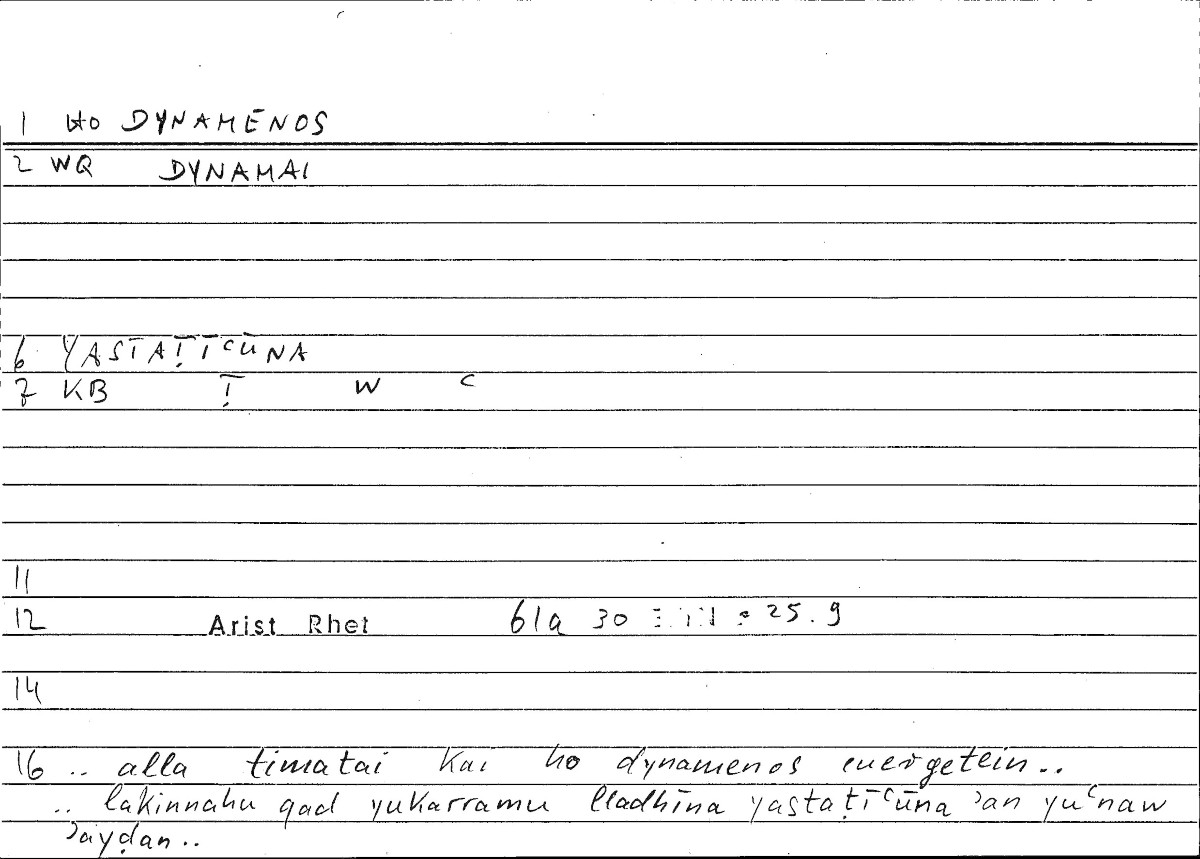 1 HO DYNAMENOS
2 WQ DYNAMAI
6 YASTAṬĪʿŪNA
7 KB Ṭ W ʿ
11
12 Arist Rhet 61a 30 25.9
14
16 .. alla timatai kai ho dynamenos euergetein..
.. lakinnahu qad yukarramu lladhīna yastaṭīʿūna ʾan yuʿnaw
ʾayḍan..